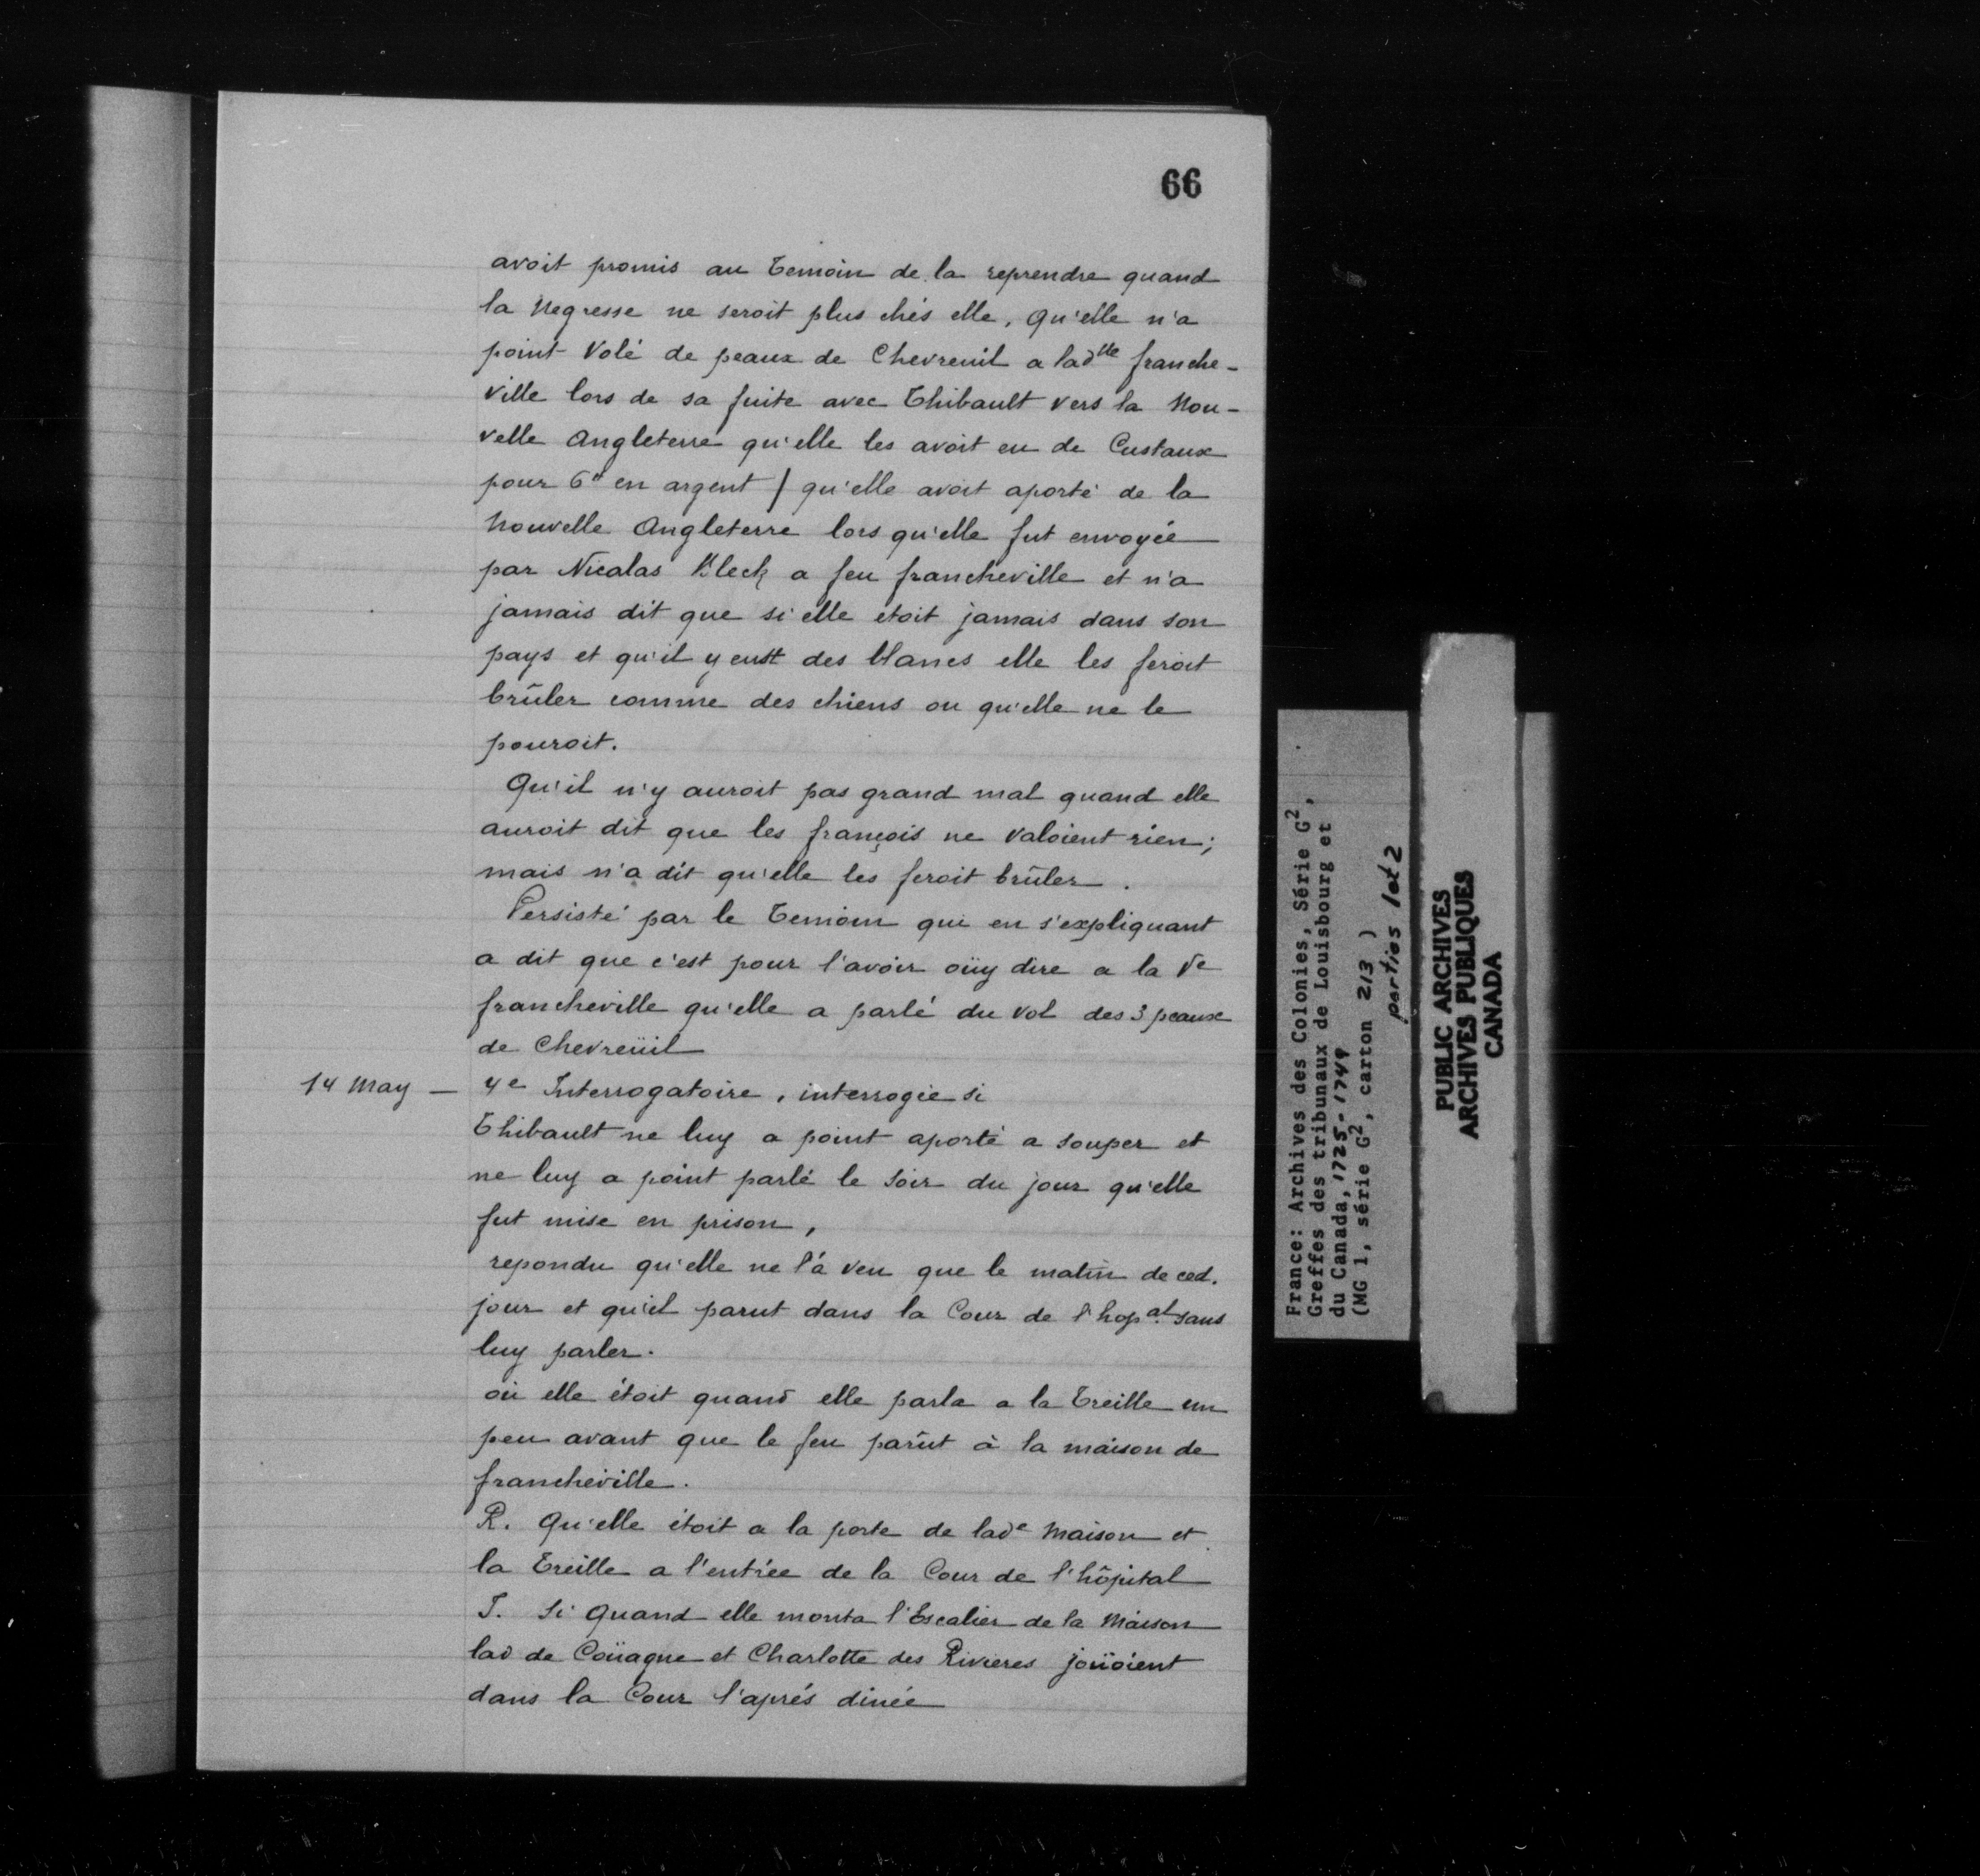 66
avoit promis au Temoin de la reprendre quand
la Negresse ne seroit plus chés elle, qu'elle n'a
point Volé de peaux de Chevreuil a ladlle franche-
ville lors de sa fuite avec Thibault vers la Nou-
velle Angleterre qu'elle les avoit eu de Custaux
pour 6# en argent / qu'elle avoit aporté de la
Nouvelle Angleterre lors qu'elle fut envoyée
par Nicalas Bleck a feu francheville et n'a
jamais dit que si elle etoit jamais dans son
pays et qu'il y eustt des blancs elle les feroit
brûler comme des chiens ou qu'elle ne le
pouroit.
Qu'il n'y auroit pas grand mal quand elle
auroit dit que les françois ne valoient rien;
mais n'a dit qu'elle les feroit brûler.
Persisté par le Temoin qui en s'expliquant
a dit que c'est pour l'avoir oüy dire a la Ve
francheville qu'elle a parlé du vol des 3 peaux
de Chevreüil
14 May — 4e Interrogatoire, interrogée si
Thibault ne luy a point aporté a souper et
ne luy a point parlé le soir du jour qu'elle
fut mise en prison,
repondu qu'elle ne l'a veu que le matin de ced.
jour et qu'il parut dans la Cour de l'hopal. sans
luy parler.
où elle étoit quand elle parla a la Treille un
peu avant que le feu parût à la maison de
francheville.
R. Qu'elle étoit a la porte de lade Maison et
la Treille a l'entrée de la Cour de l'hôpital
I. Si quand elle monta l'Escalier de la Maison
lad de Coüagne et Charlotte des Rivieres joüoient
dans la Cour l'aprés dinée
France: Archives des Colonies, Série G2,
Greffes des tribunaux de Louisbourg et
du Canada, 1725-1749
(MG 1, série G2, carton 213 )
parties 1 et 2
PUBLIC ARCHIVES
ARCHIVES PUBLIQUES
CANADA